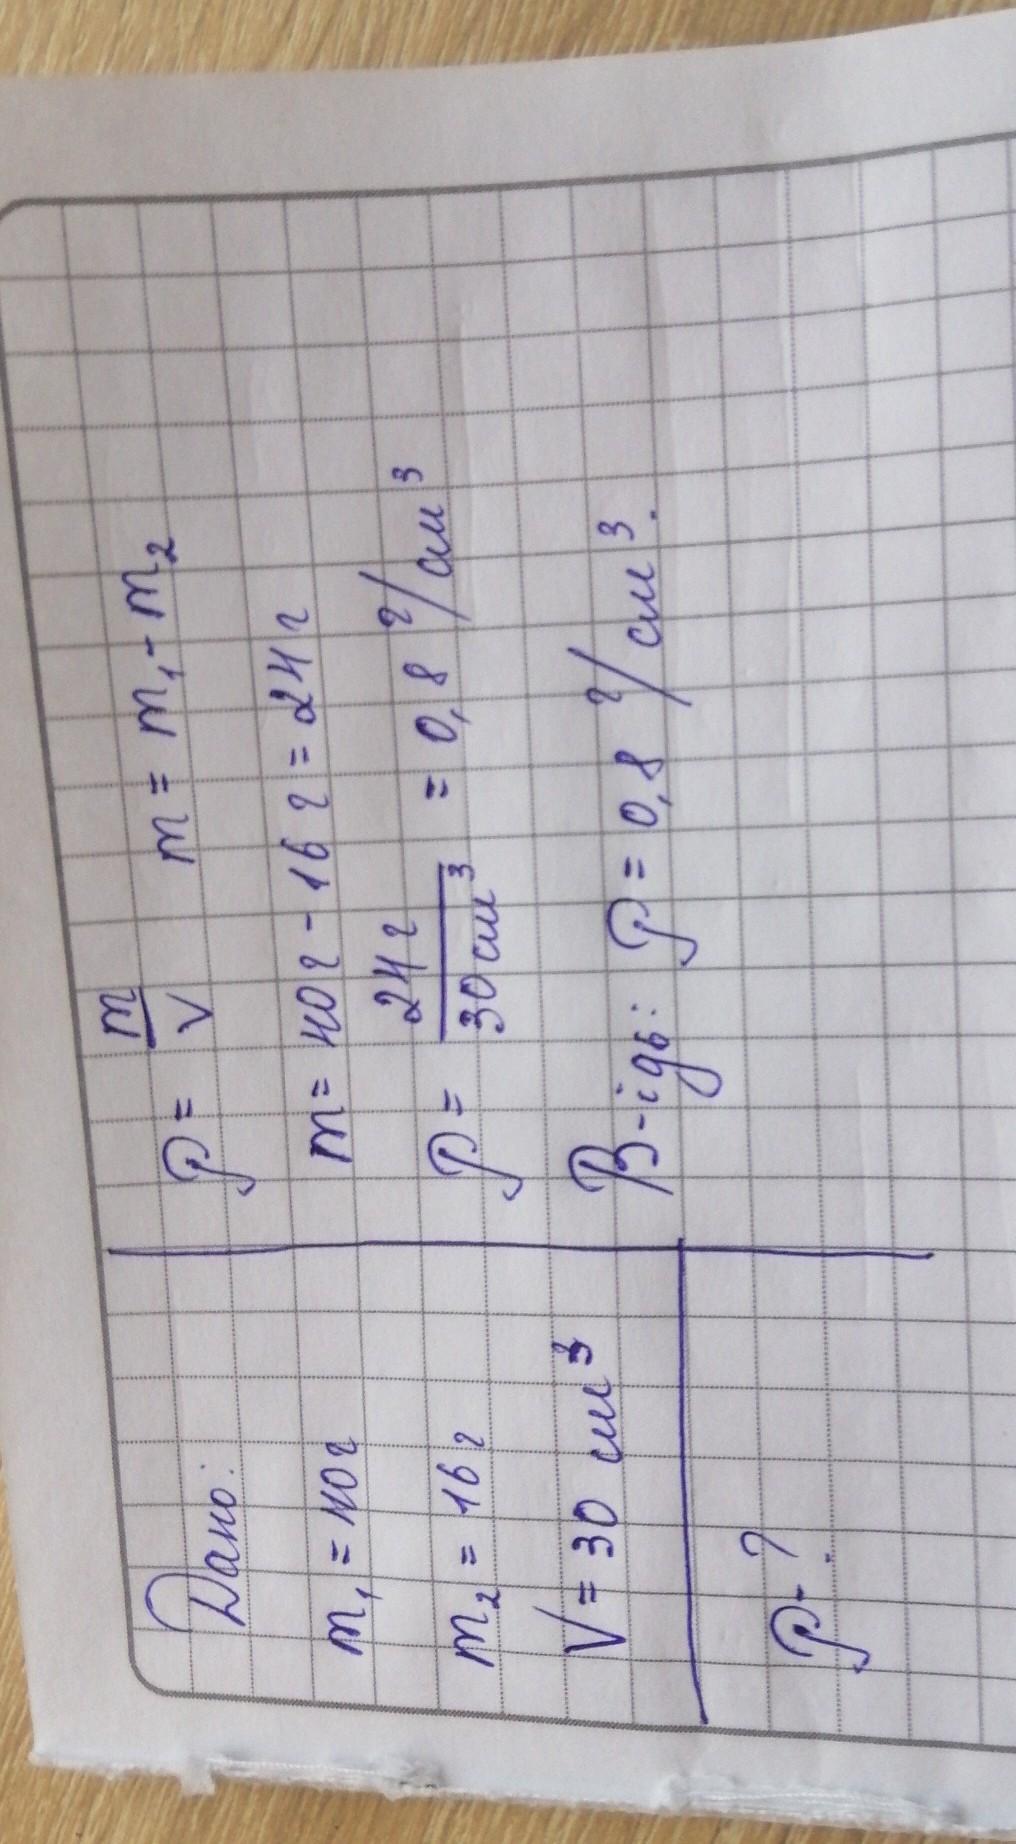 Дано:
m₁ = 40г
m₂ = 16г
V = 30 см³
ρ - ?
ρ = m/V   m = m₁ - m₂
m = 40г - 16г = 24г
ρ = 24г/30см³ = 0,8 г/см³
В-ідь: ρ = 0,8 г/см³.